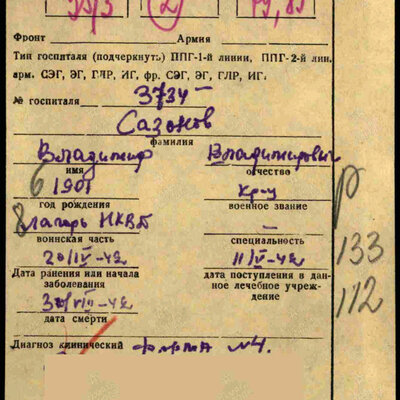 2
79,89
Фронт Армия
Тип госпиталя (подчеркнуть) ППГ-1-й линии, ППГ-2-й лин.
арм. СЭГ, ЭГ, ГЛР, ИГ, фр. СЭГ, ЭГ, ГЛР, ИГ.
№ госпиталя 3734
Сазонов
фамилия
Владимир Владимирович
имя отчество
6 1901 кр-ц р
год рождения военное звание
8 лагерь НКВД —
воинская часть специальность
133
20/IV-42 11/IV-42
Дата ранения или начала заболевания
дата поступления в данное лечебное учреждение
112
30/VIII-42
дата смерти
Диагноз клинический форма №4.